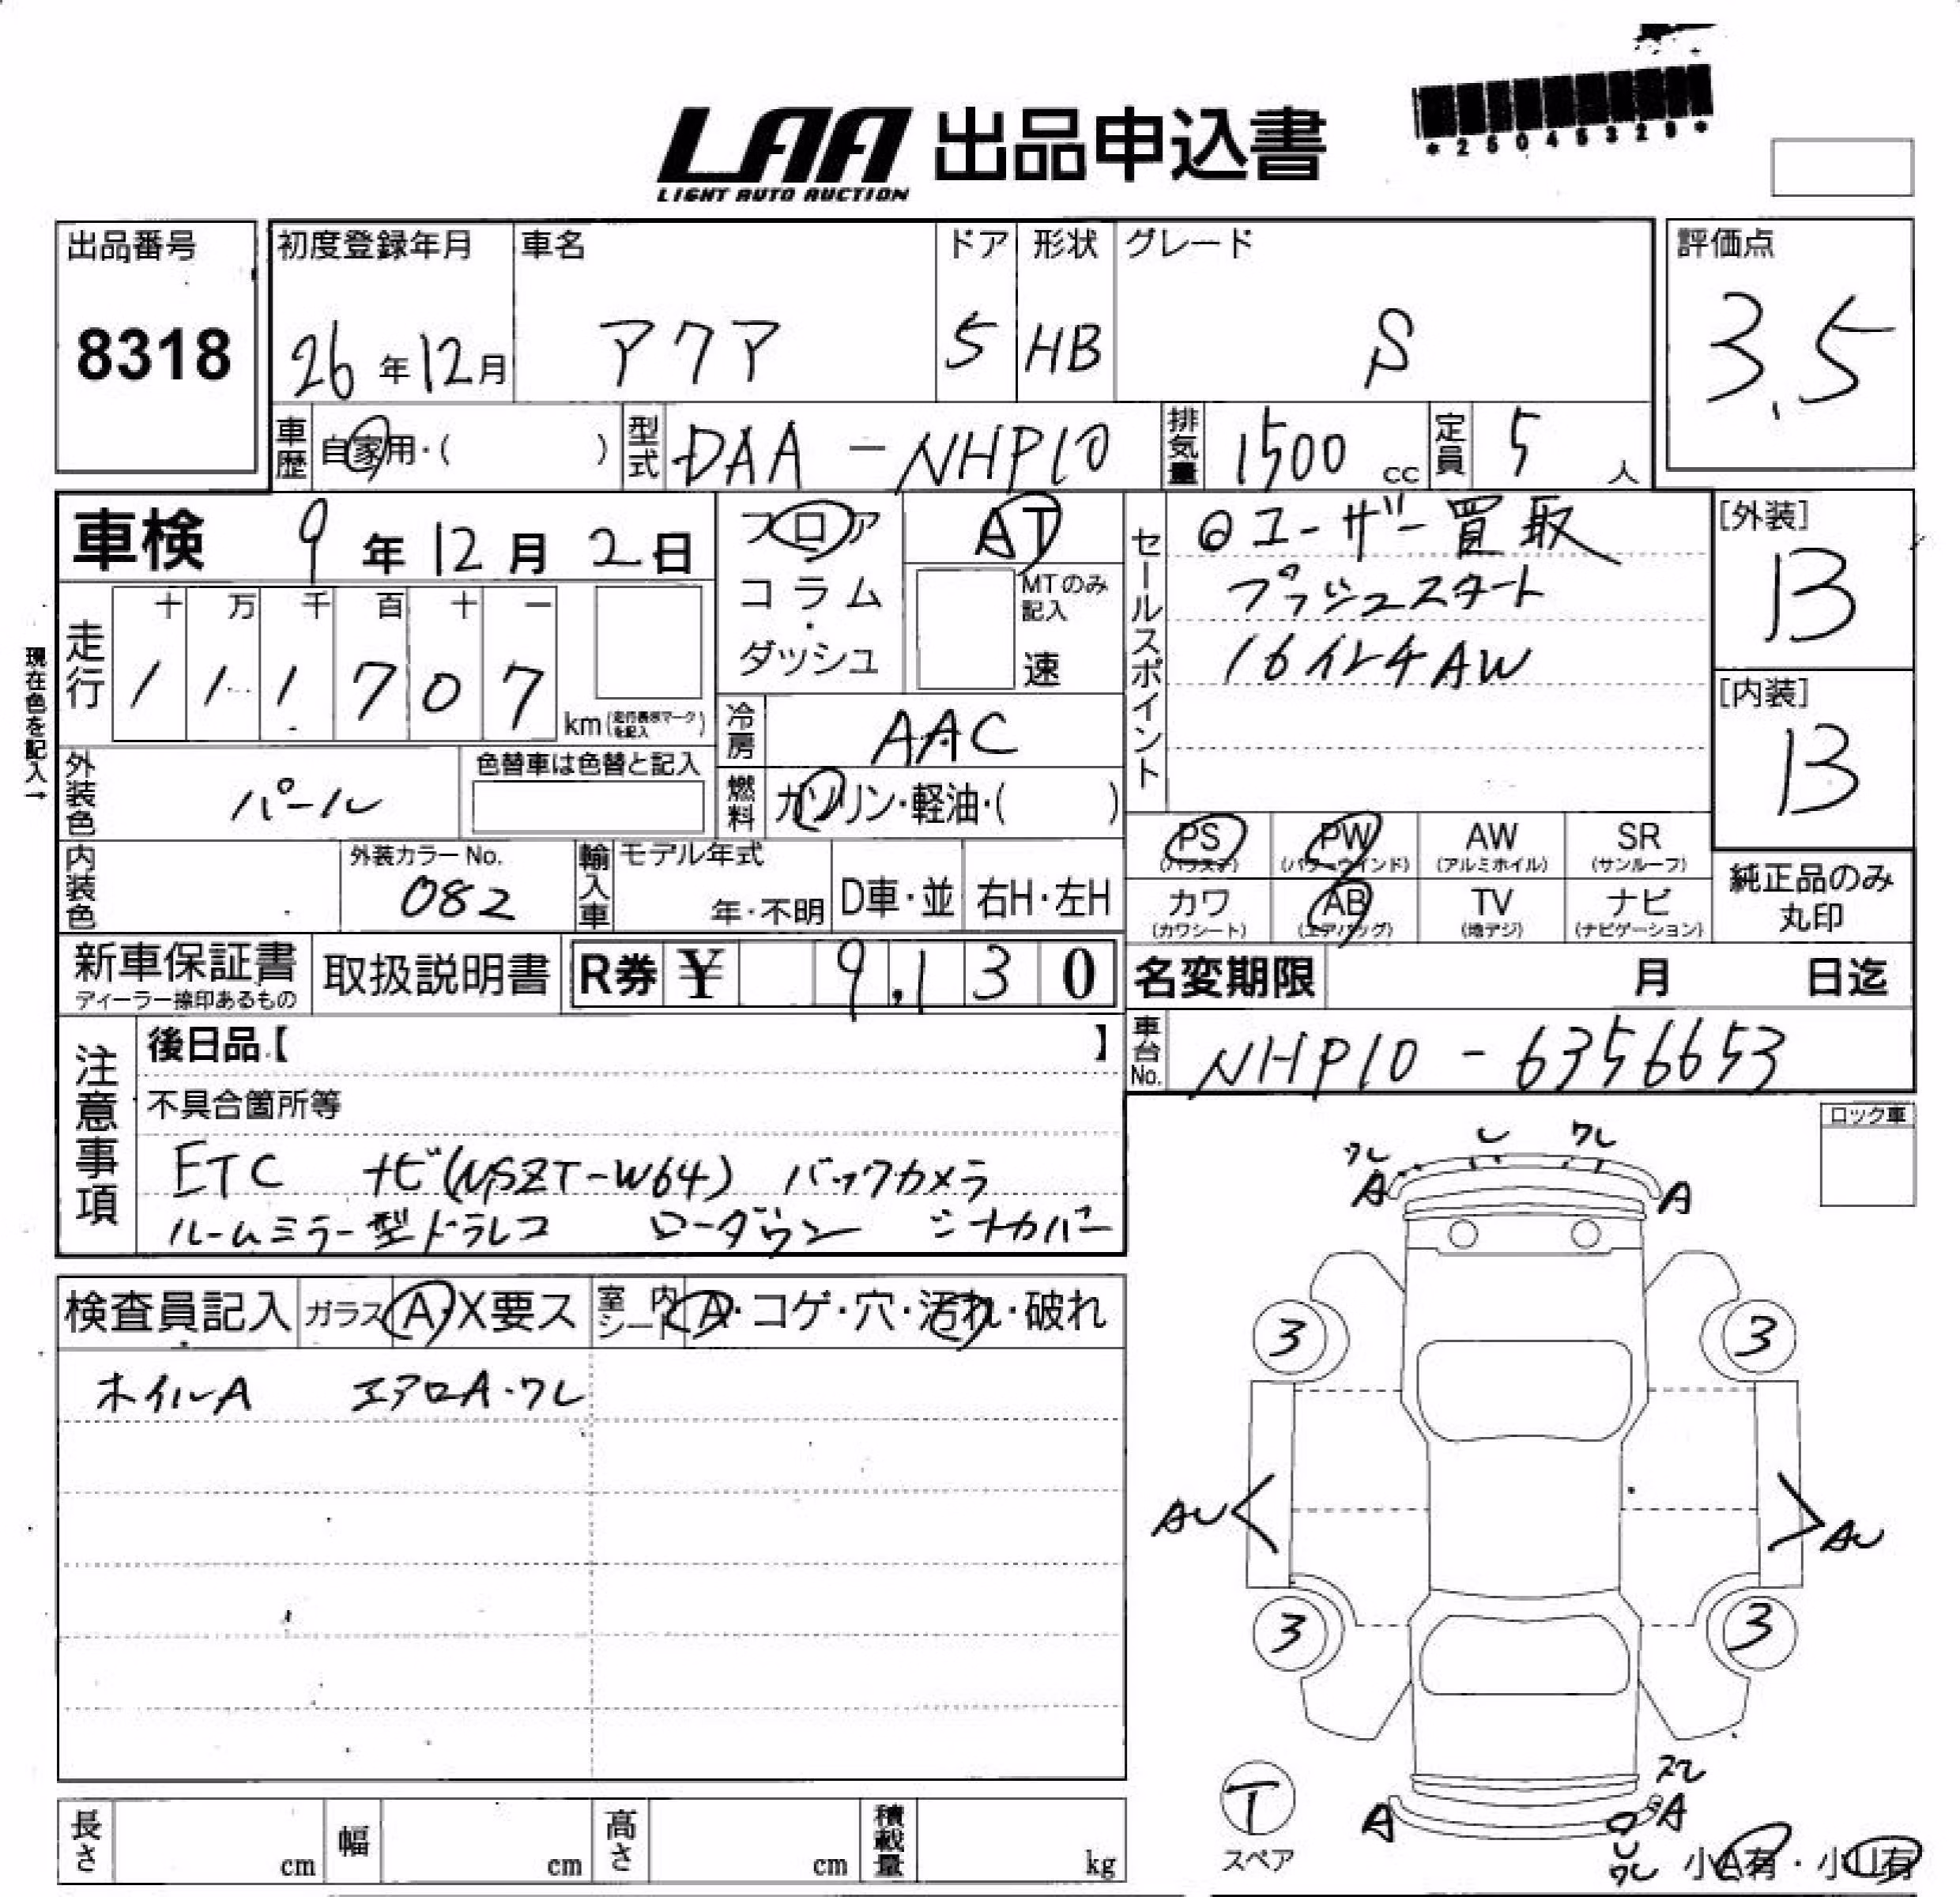 LAA 出品申込書
LIGHT AUTO AUCTION
*25045329*
出品番号
8318
初度登録年月
26年12月
車名
アクア
ドア
5
形状
HB
グレード
S
評価点
3.5
車歴 自家用・( )
型式 DAA-NHP10
排気量 1500 cc
定員 5 人
車検 9年12月2日
現在色を記入→
走行 十 万 千 百 十 一
1 1 1 7 0 7 km
フロア
コラム・
ダッシュ
AT
MTのみ記入
速
冷房 AAC
燃料 ガソリン・軽油・( )
外装色 パール
色替車は色替と記入
内装色
外装カラーNo.
082
輸入車 モデル年式
年・不明
D車・並
右H・左H
セールスポイント
◎ユーザー買取
プッシュスタート
16インチAW
[外装]
B
[内装]
B
PS (パワステ)
PW (パワーウインド)
AW (アルミホイル)
SR (サンルーフ)
カワ (カワシート)
AB (エアバッグ)
TV (地デジ)
ナビ (ナビゲーション)
純正品のみ
丸印
新車保証書
ディーラー捺印あるもの
取扱説明書
R券 ¥ 9,130
名変期限 月 日迄
車台No. NHP10-6356653
注意事項
後日品【 】
不具合箇所等
ETC ナビ(NSZT-W64) バックカメラ
ルームミラー型ドラレコ ローダウン シートカバー
ロック車
検査員記入
ガラス A・X要ス
室内シート A・コゲ・穴・汚れ・破れ
ホイルA エアロA・ワレ
ワレ
A
ワレ
A
3
3
AU
AU
3
3
T
スペア
A
A
U
ワレ
小A有・小U有
長さ cm
幅 cm
高さ cm
積載量 kg